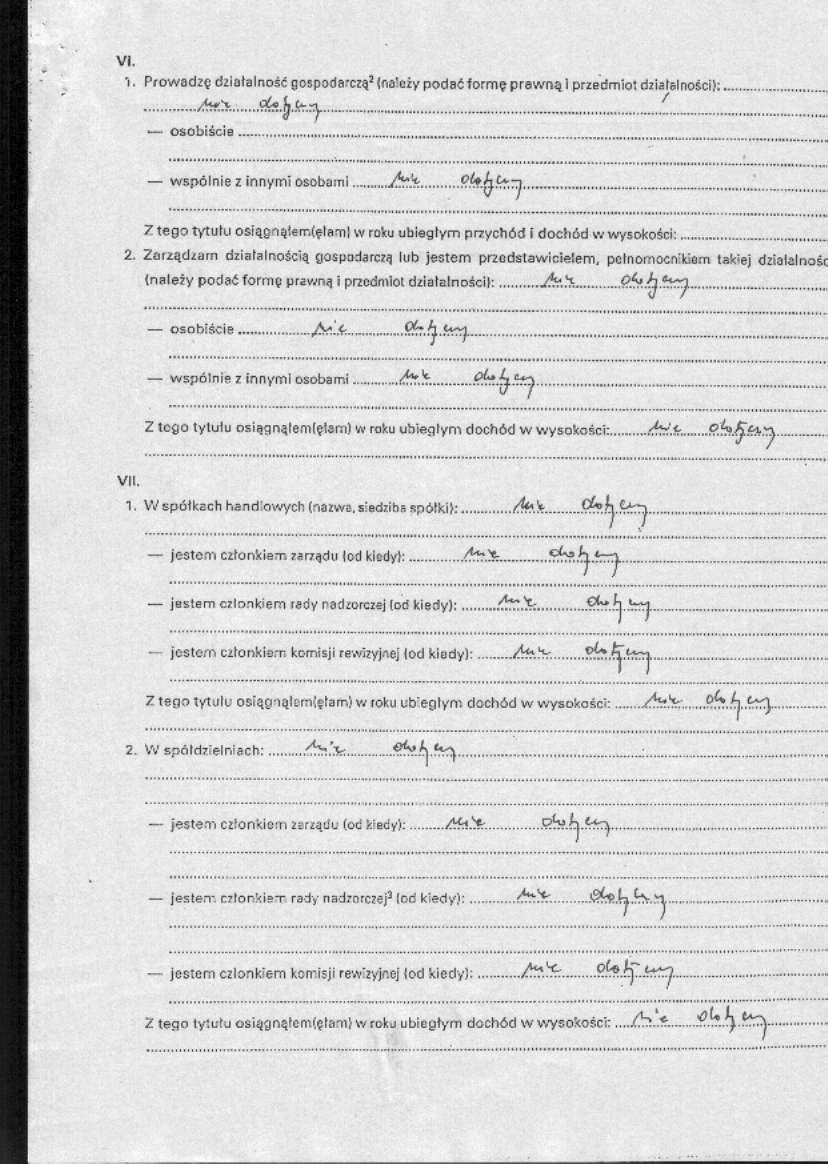 VI.
1. Prowadzę działalność gospodarczą² (należy podać formę prawną i przedmiot działalności): ....................
.................... nie dotyczy ....................
— osobiście ....................
....................
— wspólnie z innymi osobami .......... nie dotyczy ....................
....................
Z tego tytułu osiągnąłem(ęłam) w roku ubiegłym przychód i dochód w wysokości: ....................
2. Zarządzam działalnością gospodarczą lub jestem przedstawicielem, pełnomocnikiem takiej działalnośc
(należy podać formę prawną i przedmiot działalności): .......... nie dotyczy ....................
....................
— osobiście .......... nie dotyczy ....................
....................
— wspólnie z innymi osobami .......... nie dotyczy ....................
....................
Z tego tytułu osiągnąłem(ęłam) w roku ubiegłym dochód w wysokości: .......... nie dotyczy ..........
....................
VII.
1. W spółkach handlowych (nazwa, siedziba spółki): .......... nie dotyczy ....................
....................
— jestem członkiem zarządu (od kiedy): .......... nie dotyczy ....................
....................
— jestem członkiem rady nadzorczej (od kiedy): .......... nie dotyczy ....................
....................
— jestem członkiem komisji rewizyjnej (od kiedy): .......... nie dotyczy ....................
....................
Z tego tytułu osiągnąłem(ęłam) w roku ubiegłym dochód w wysokości: .......... nie dotyczy ..........
....................
2. W spółdzielniach: .......... nie dotyczy ....................
....................
....................
— jestem członkiem zarządu (od kiedy): .......... nie dotyczy ....................
....................
....................
— jestem członkiem rady nadzorczej³ (od kiedy): .......... nie dotyczy ....................
....................
....................
— jestem członkiem komisji rewizyjnej (od kiedy): .......... nie dotyczy ....................
....................
Z tego tytułu osiągnąłem(ęłam) w roku ubiegłym dochód w wysokości: .......... nie dotyczy ..........
....................